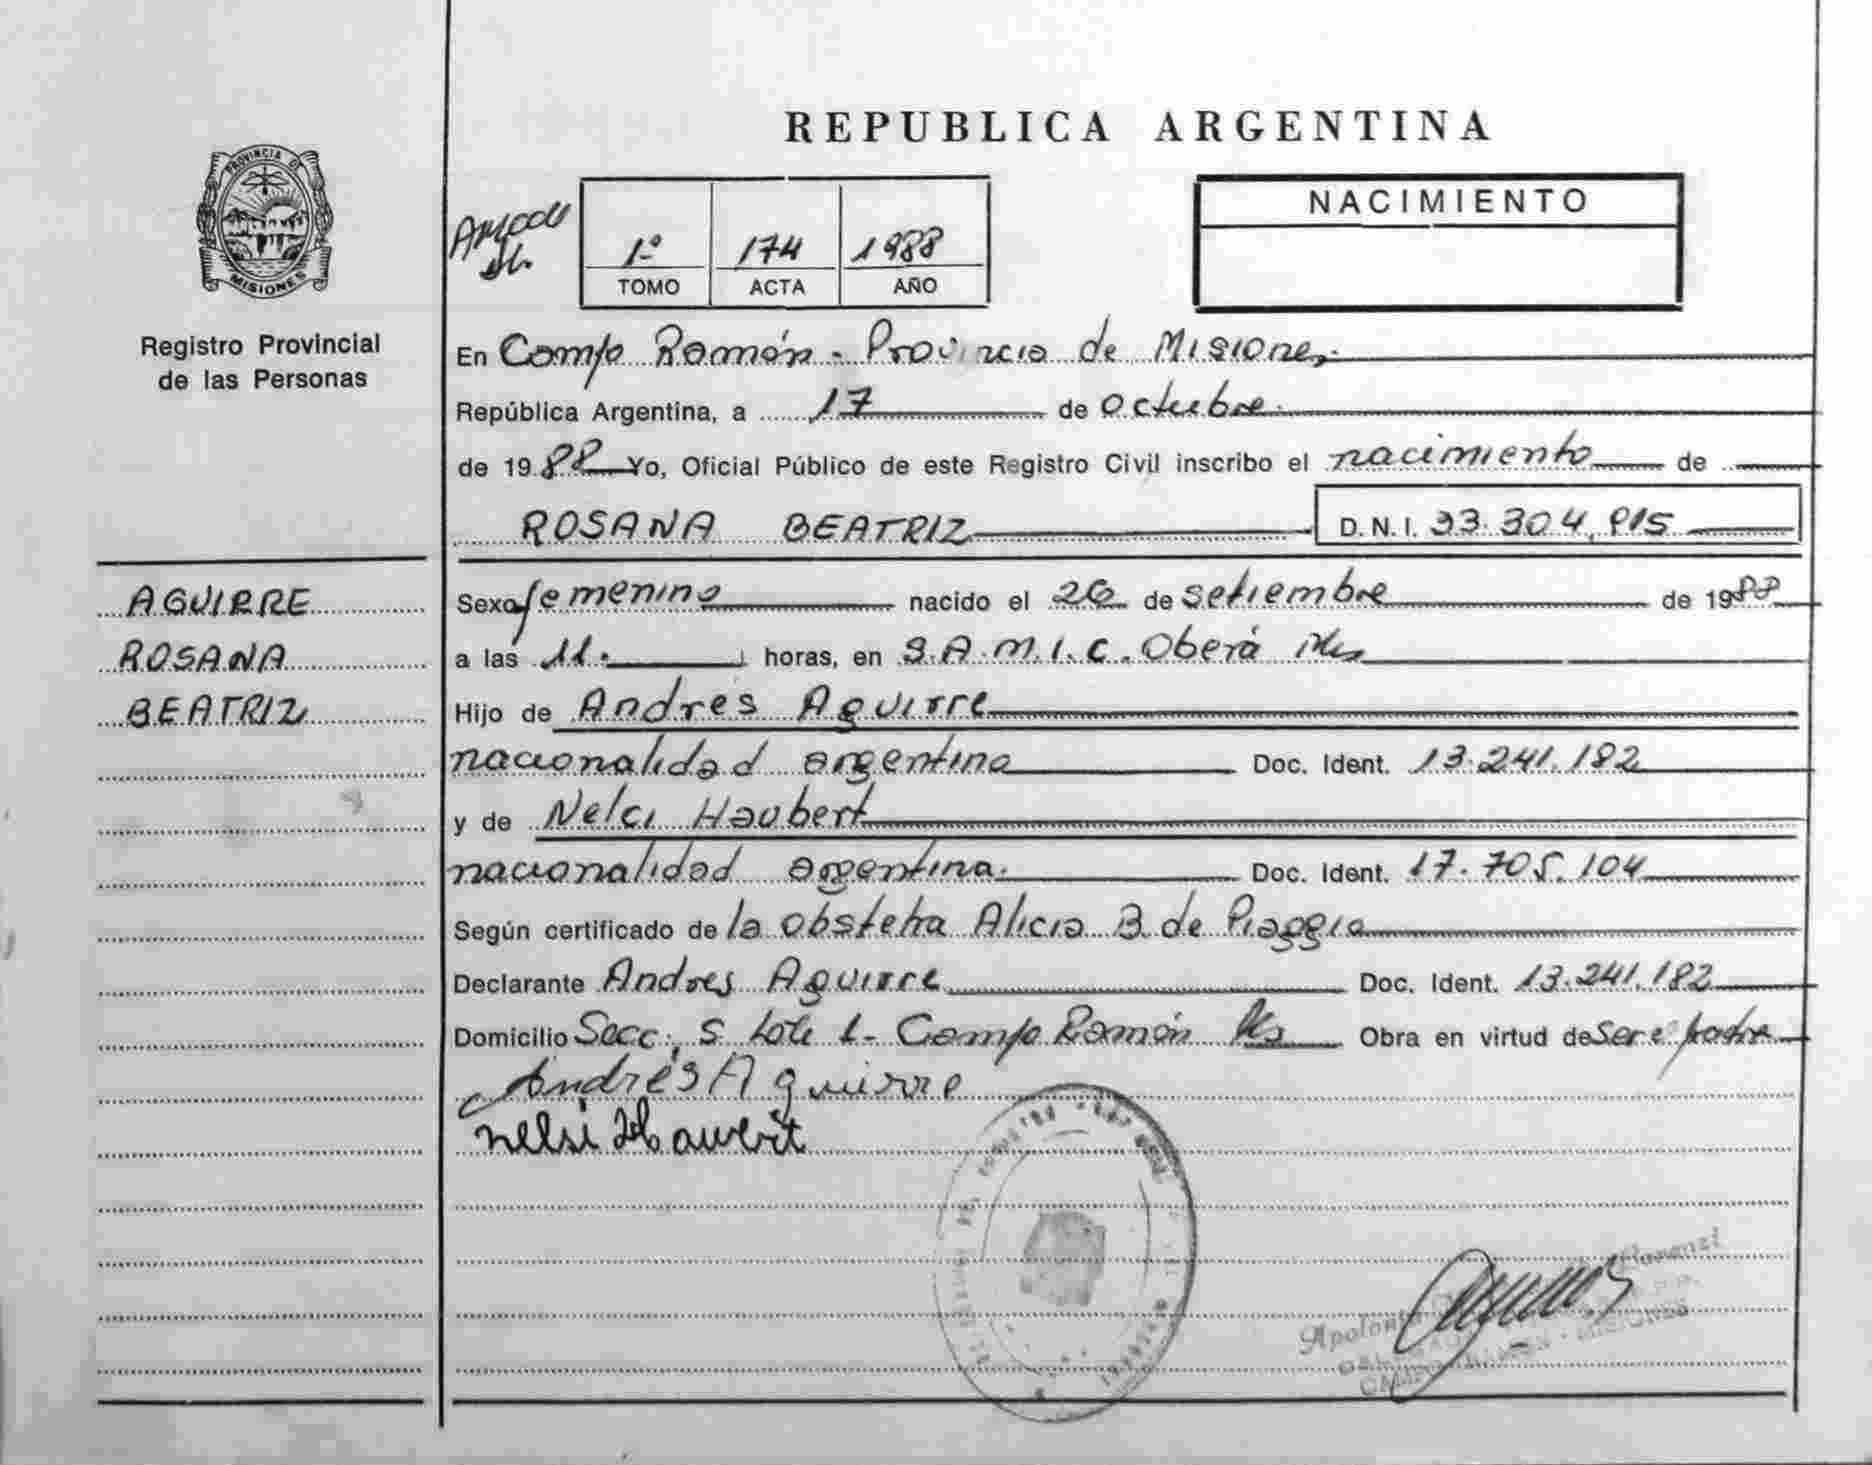 PROVINCIA DE
MISIONES
Registro Provincial
de las Personas
AGUIRRE
ROSANA
BEATRIZ
REPUBLICA ARGENTINA
1º 174 1988
TOMO ACTA AÑO
NACIMIENTO
En Campo Ramón - Provincia de Misiones
República Argentina, a 17 de octubre
de 1988 Yo, Oficial Público de este Registro Civil inscribo el nacimiento de
ROSANA BEATRIZ D.N.I. 33.304.815
Sexo femenino nacido el 26 de setiembre de 1988
a las 11. horas, en S.A.M.I.C. Oberá Mis
Hijo de Andrés Aguirre
nacionalidad argentina Doc. Ident. 13.241.182
y de Nelci Haubert
nacionalidad argentina. Doc. Ident. 17.705.104
Según certificado de la obstetra Alicia B. de Piaggio
Declarante Andres Aguirre Doc. Ident. 13.241.182
Domicilio Secc. 5 Lote 1 - Campo Ramón Mis Obra en virtud de ser el padre
Andrés Aguirre
nelsi Hauvert